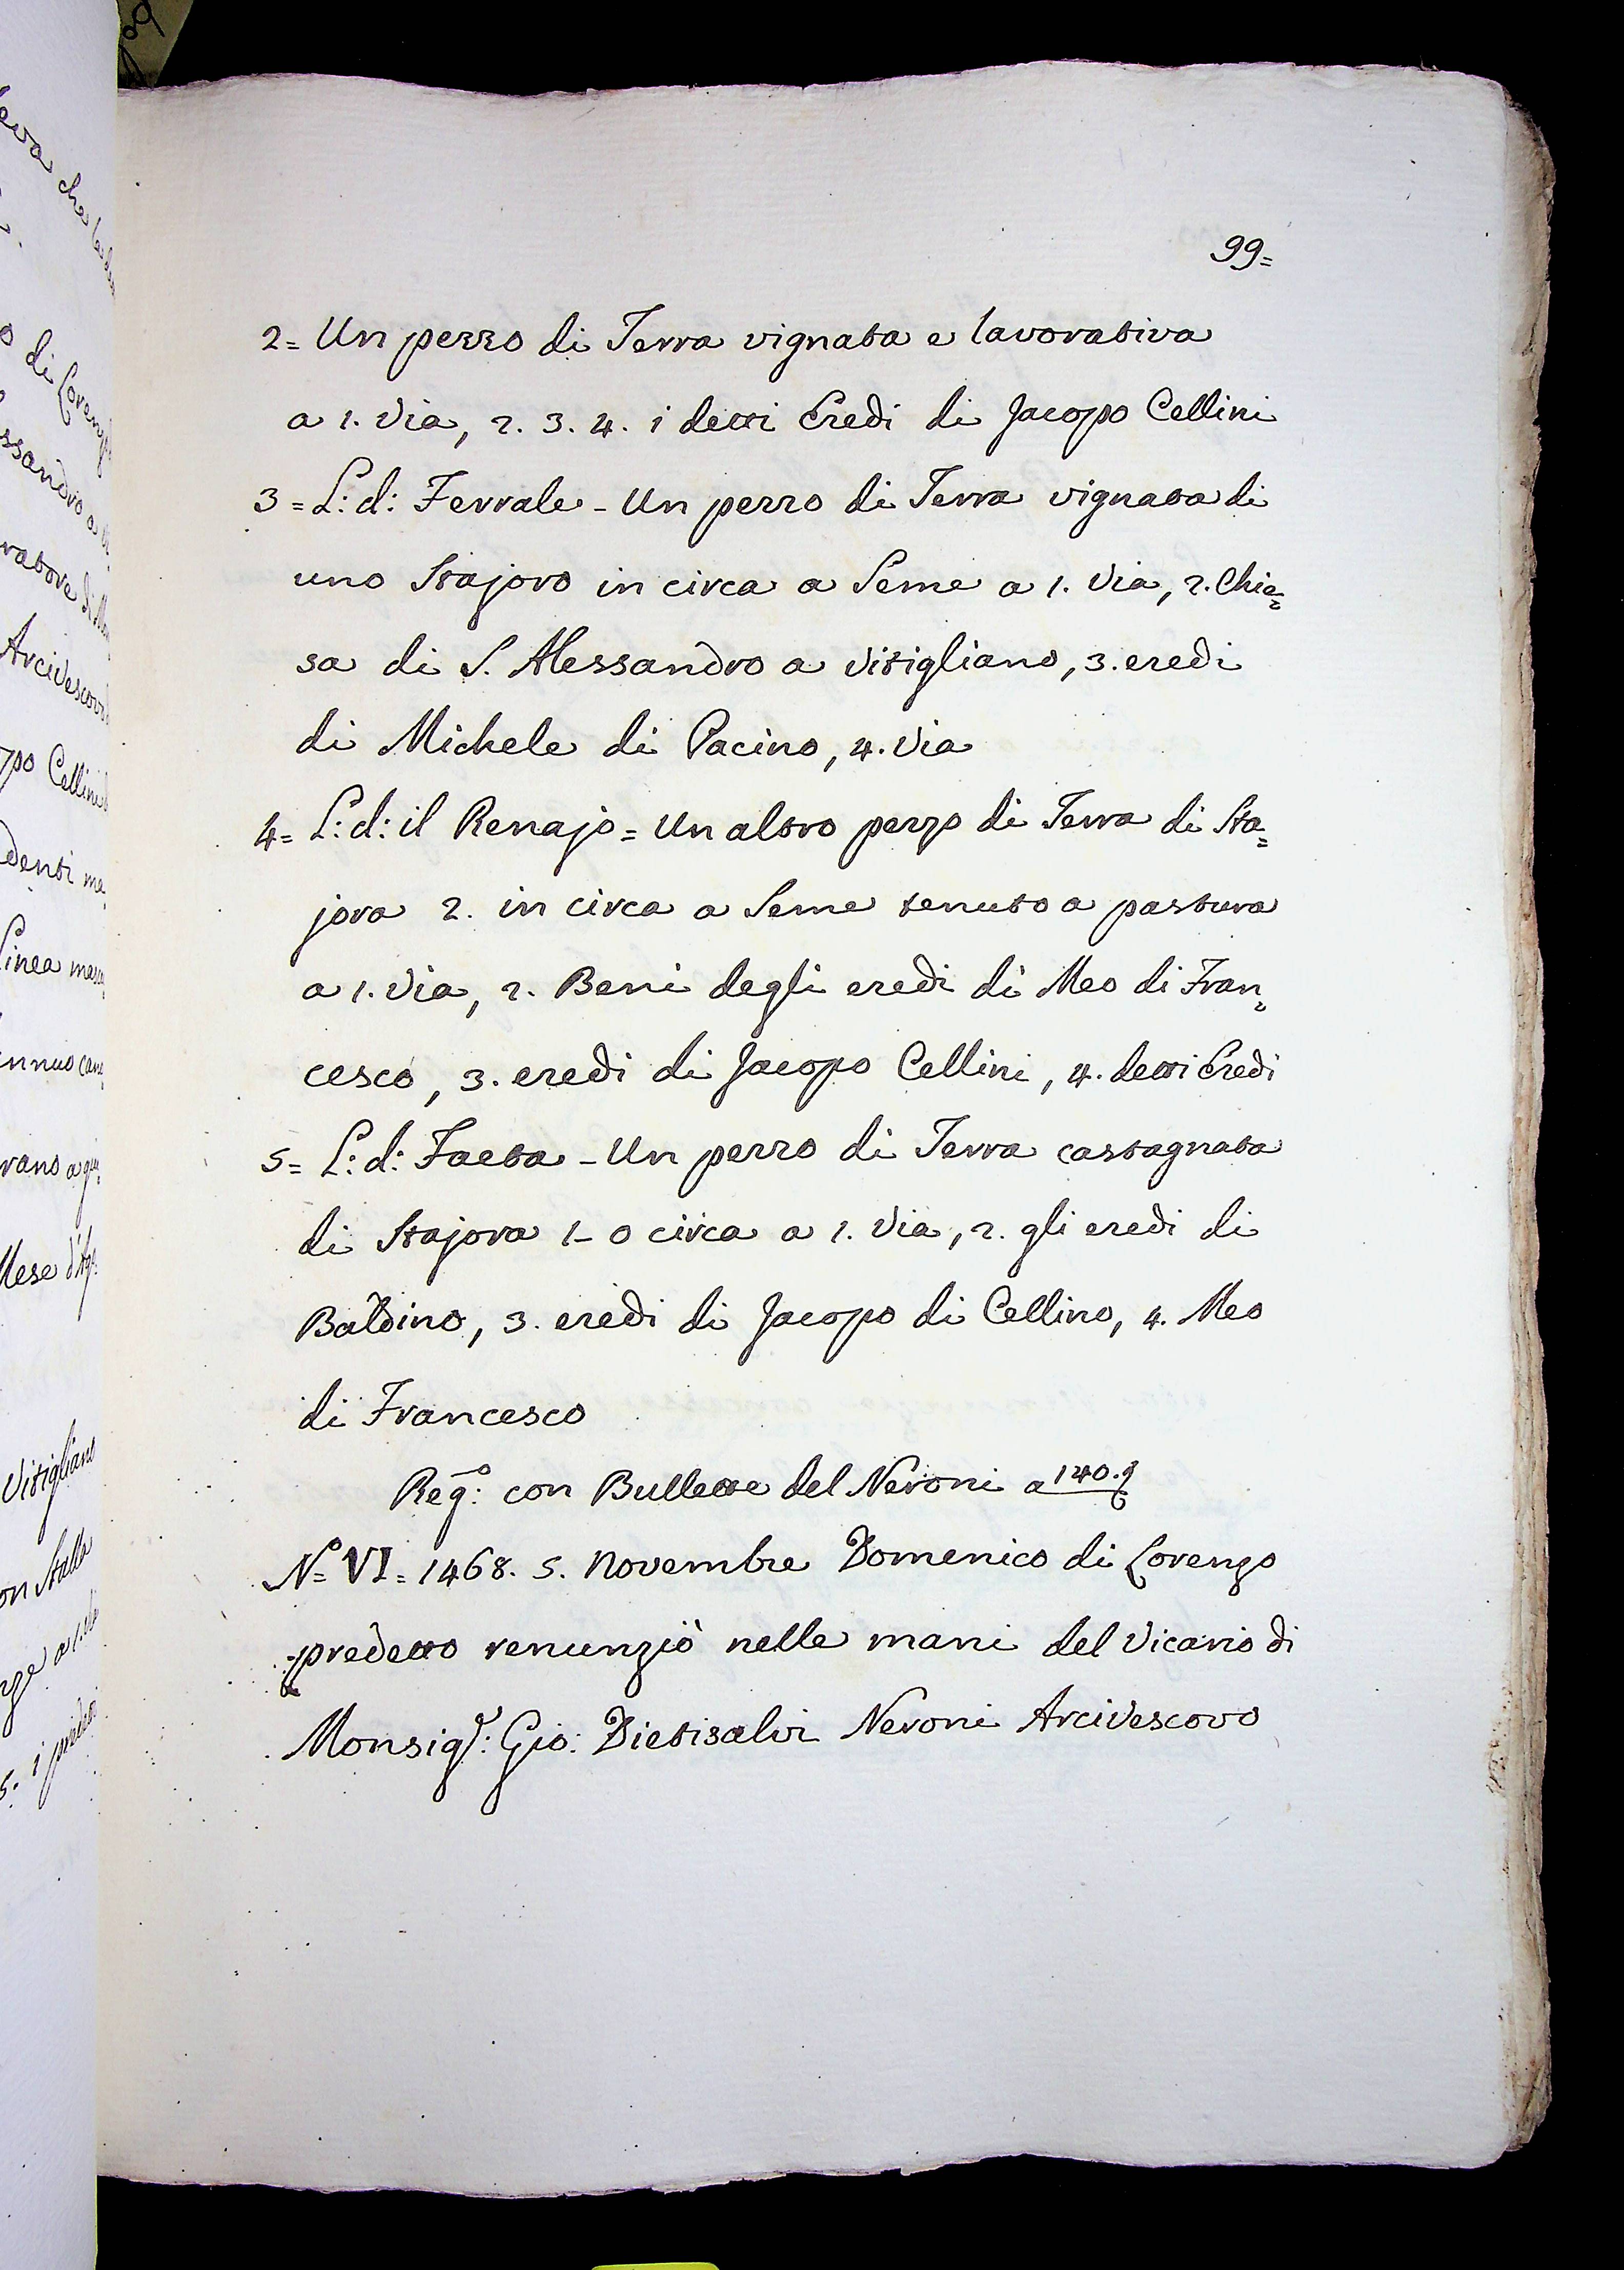 99=
2= Un pezzo di Terra vignata e lavorativa
a 1. Via, 2. 3. 4. i detti Eredi di Jacopo Cellini
3= L: d: Ferrale - Un pezzo di Terra vignata di
uno Stajoro in circa a Seme a 1. Via, 2. Chie=
sa di S. Alessandro a Vitigliano, 3. eredi
di Michele di Pacino, 4. Via
4= L: d: il Renajo = Un altro pezzo di Terra di Sta=
jora 2. in circa a Seme tenuto a pastura
a 1. Via, 2. Beni degli eredi di Meo di Fran=
cesco, 3. eredi di Jacopo Cellini, 4. detti Eredi
5= L: d: Faeta - Un pezzo di Terra castagnata
di Stajora 1-0 circa a 1. Via, 2. gli eredi di
Baldino, 3. eredi di Jacopo di Cellino, 4. Meo
di Francesco
Reg:o con Bullette del Neroni a 140.
No= VI= 1468. 5. Novembre Domenico di Lorenzo
predetto renunziò nelle mani del Vicario di
Monsigr: Gio: Dietisalvi Neroni Arcivescovo